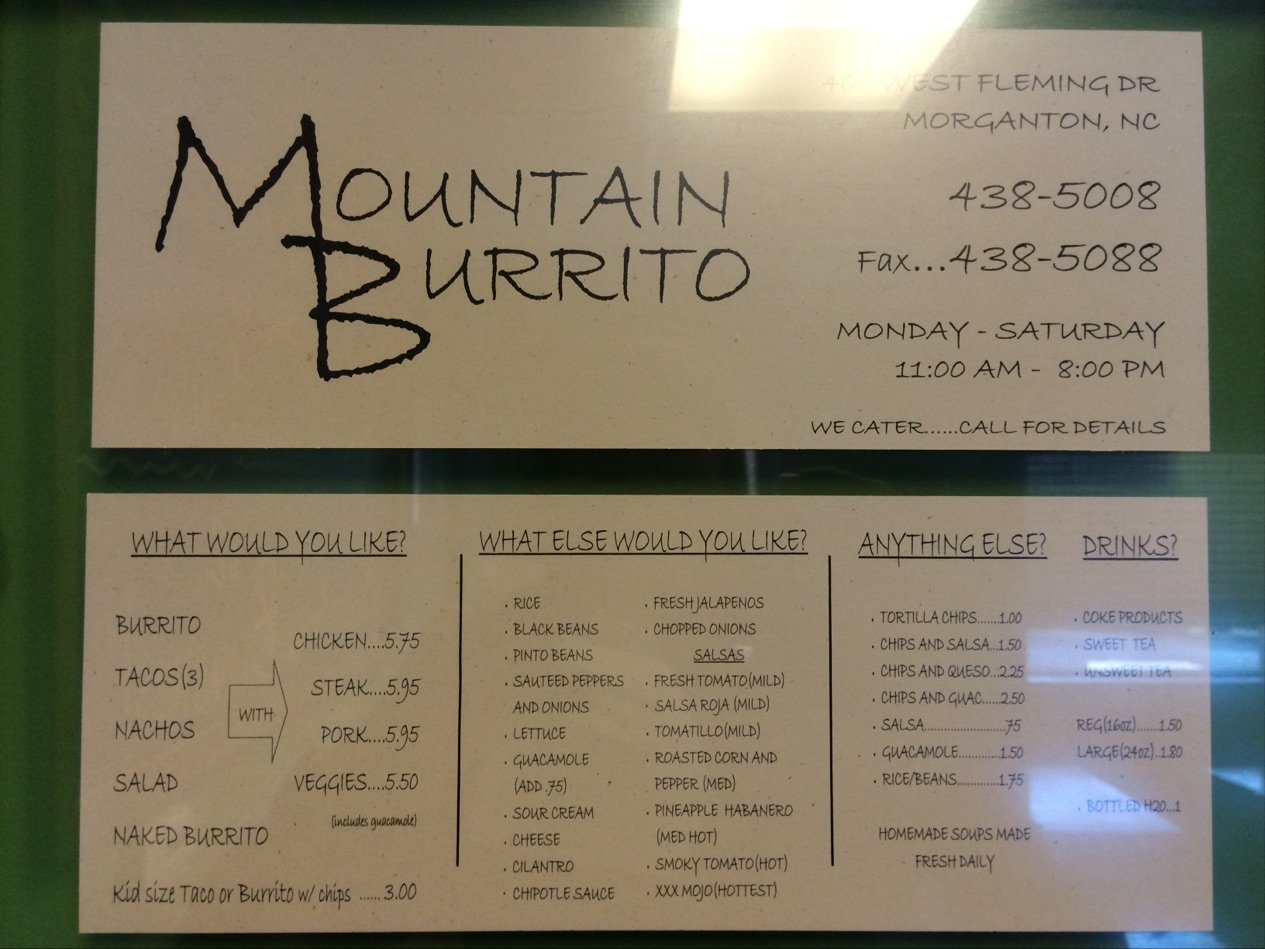 WEST FLEMING DR
MORGANTON, NC
MOUNTAIN
BURRITO
438-5008
Fax...438-5088
MONDAY - SATURDAY
11:00 AM - 8:00 PM
WE CATER......CALL FOR DETAILS
WHAT WOULD YOU LIKE?
BURRITO
TACOS(3)
NACHOS
SALAD
NAKED BURRITO
WITH
CHICKEN....5.75
STEAK....5.95
PORK....5.95
VEGGIES....5.50
(includes guacamole)
Kid size Taco or Burrito w/ chips ...... 3.00
WHAT ELSE WOULD YOU LIKE?
. RICE
. BLACK BEANS
. PINTO BEANS
. SAUTEED PEPPERS
AND ONIONS
. LETTUCE
. GUACAMOLE
(ADD .75)
. SOUR CREAM
. CHEESE
. CILANTRO
. CHIPOTLE SAUCE
. FRESH JALAPENOS
. CHOPPED ONIONS
SALSAS
. FRESH TOMATO(MILD)
. SALSA ROJA (MILD)
. TOMATILLO(MILD)
. ROASTED CORN AND
PEPPER (MED)
. PINEAPPLE HABANERO
(MED HOT)
. SMOKY TOMATO(HOT)
. XXX MOJO(HOTTEST)
ANYTHING ELSE?
. TORTILLA CHIPS.......1.00
. CHIPS AND SALSA...1.50
. CHIPS AND QUESO...2.25
. CHIPS AND GUAC......2.50
. SALSA.........................75
. GUACAMOLE............1.50
. RICE/BEANS.............1.75
HOMEMADE SOUPS MADE
FRESH DAILY
DRINKS?
. COKE PRODUCTS
. SWEET TEA
. UNSWEET TEA
REG(16oz)........1.50
LARGE(24oz)..1.80
. BOTTLED H20...1